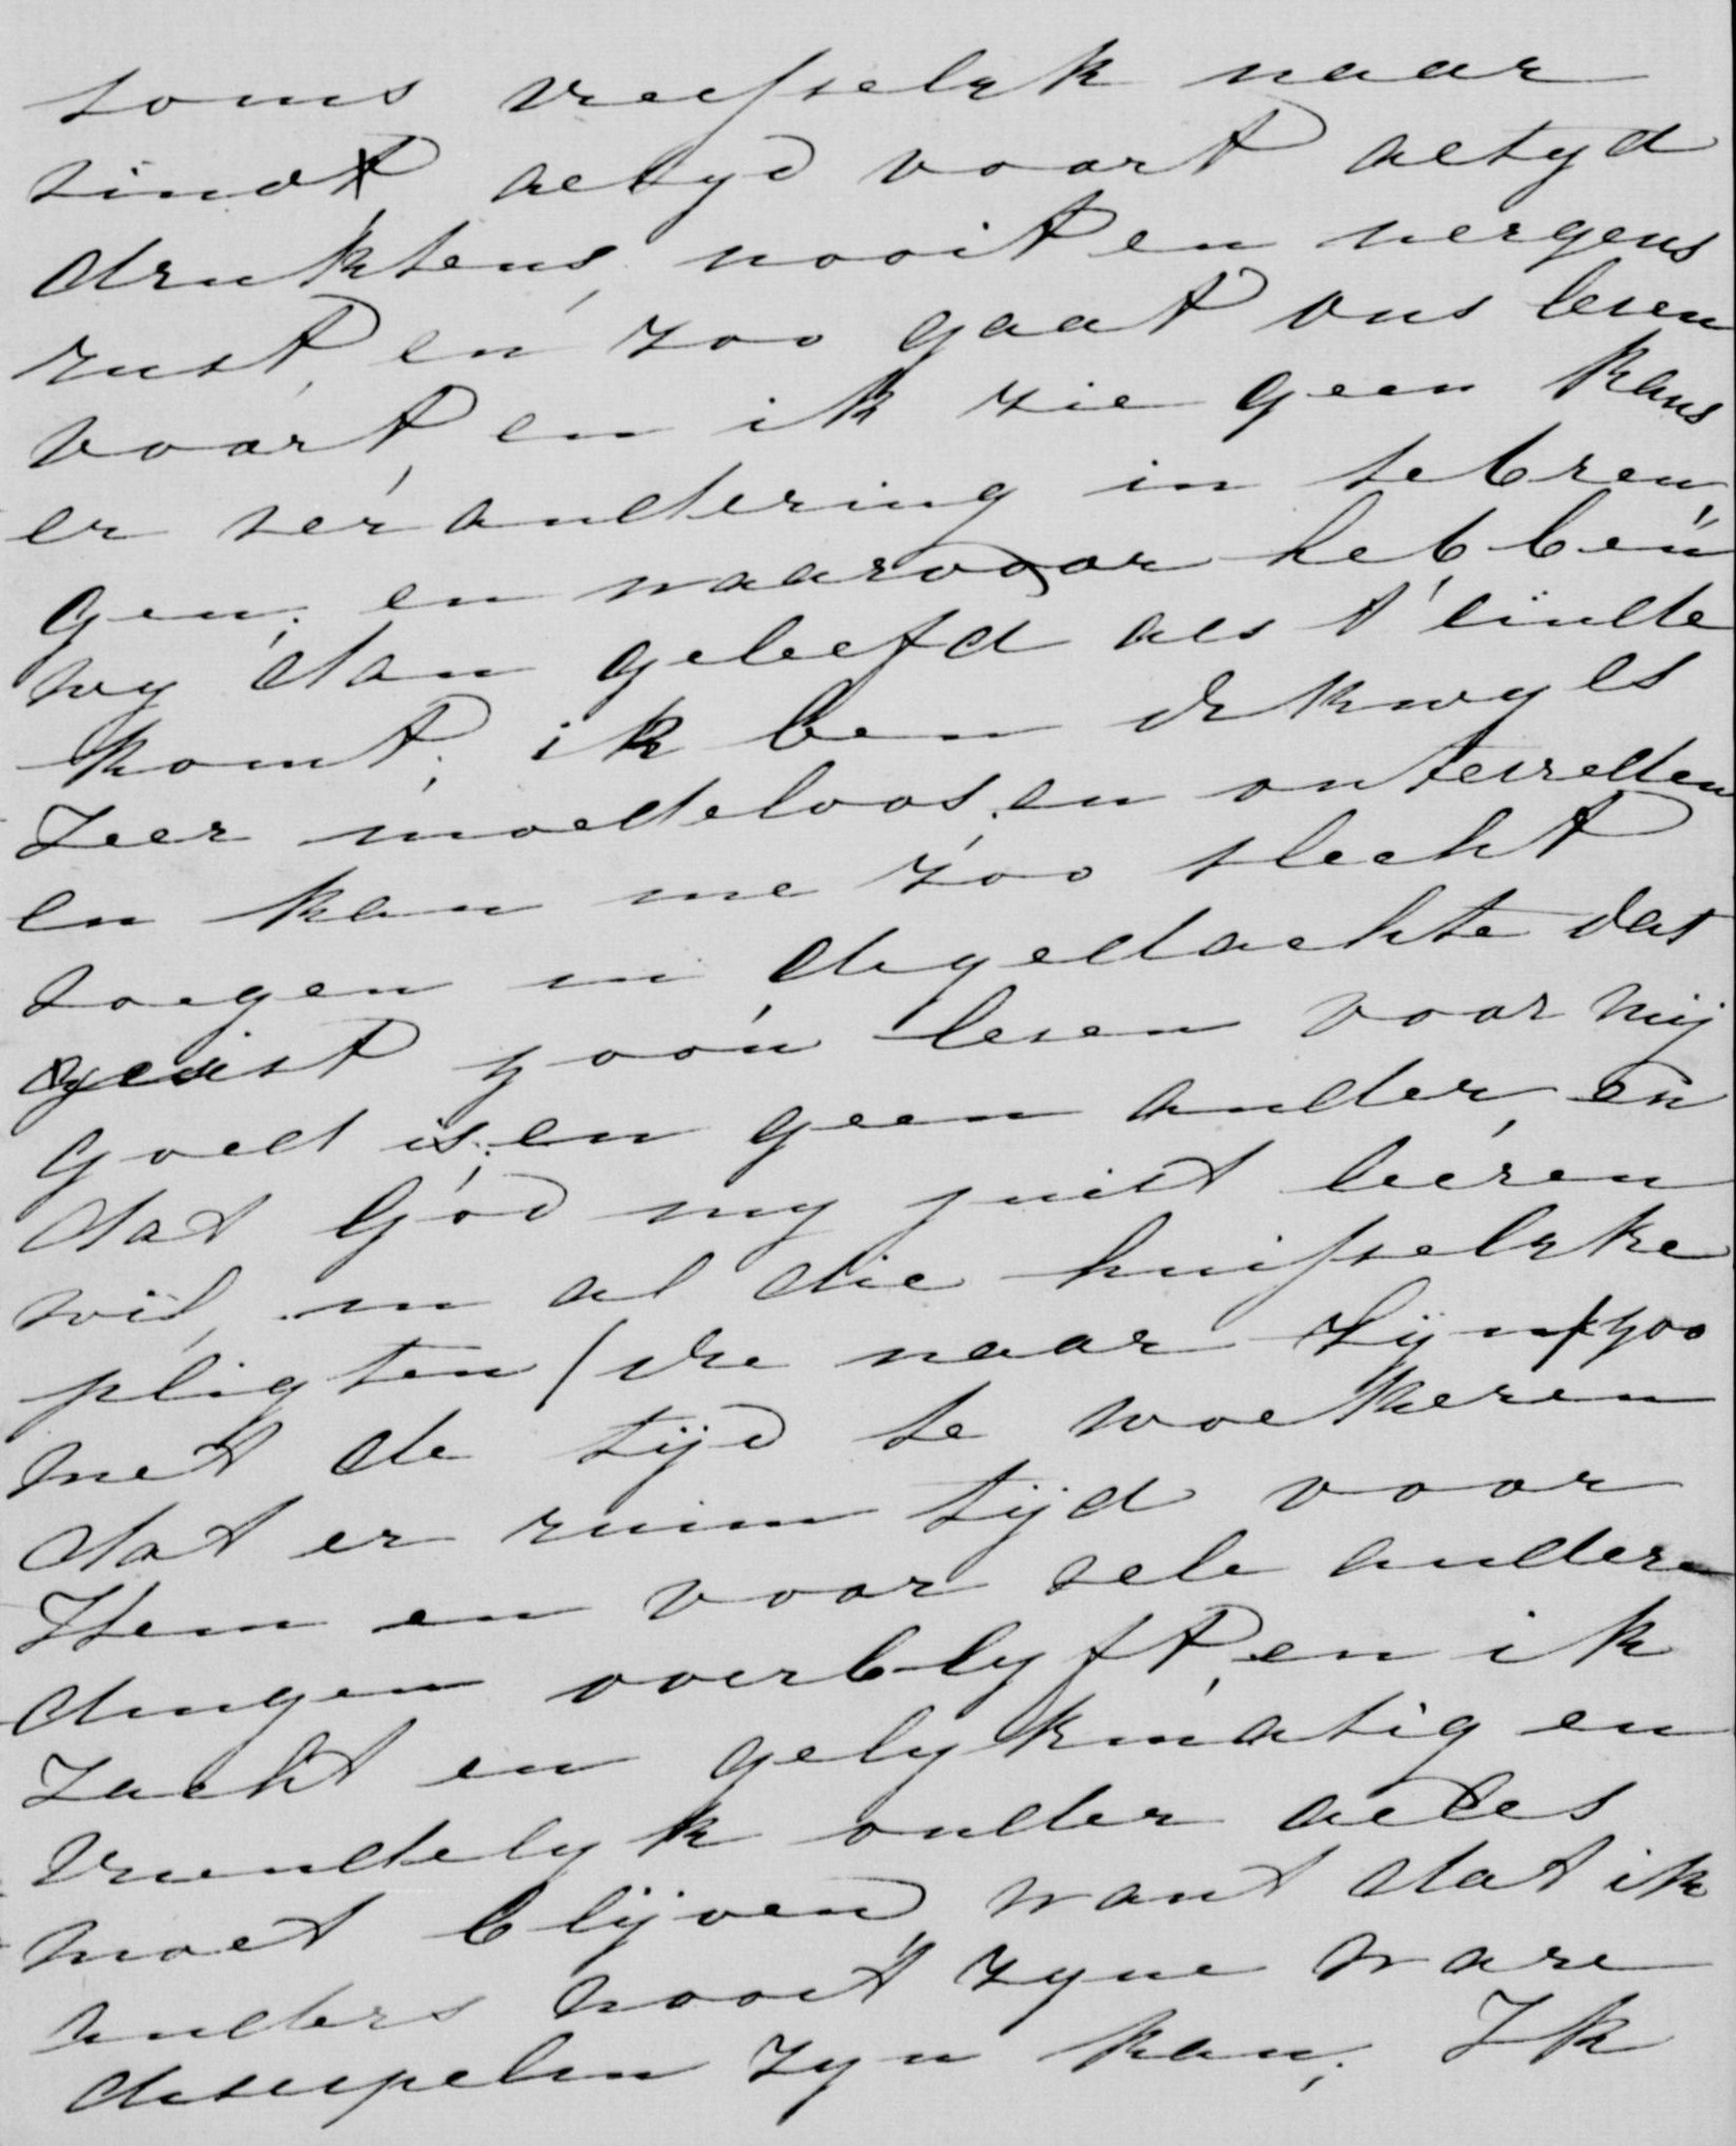 soms vreesselyk naar
vindt altyd voort altyd
druktens, nooit en nergens
rust, en zoo gaat ons leven
voort, en ik zie geen kans
er verandering in te bren„
gen; en waarvoor hebben
wy dan geleefd als 't einde
komt; ik ben dikwyls
Zeer moedeloos; en ontevreden
en kan me zoo slecht
voegen in de gedachte dat
juist zoo'n leven voor mij
goed is; en geen ander, en
dat God my juist leeren
wil, in al die huisselyke
pligten (die naar zijn) zoo
met de tijd te woekeren
dat er ruim tijd voor
Hem en voor vele andere
dingen overblyft, en ik
Zacht en gelykmatig en
vriendelyk onder alles
moet blijven, want dat ik
anders nooit zyne ware
discipelin zyn kan; Ik